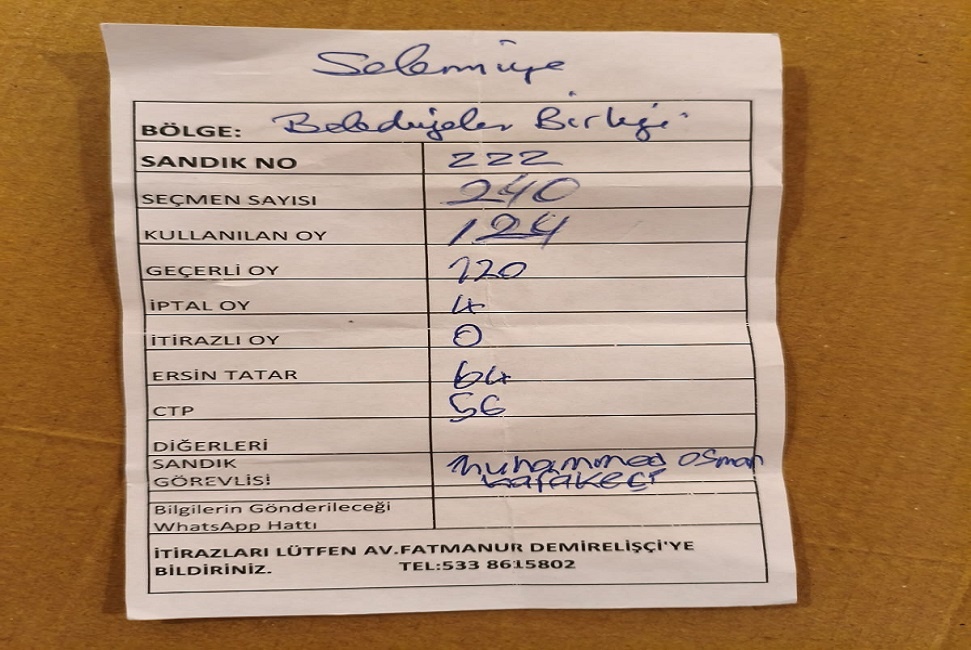 Selemiye
BÖLGE: Belediyeler Birliği
SANDIK NO 222
SEÇMEN SAYISI 240
KULLANILAN OY 124
GEÇERLİ OY 120
İPTAL OY 4
İTİRAZLI OY 0
ERSİN TATAR 64
CTP 56
DİĞERLERİ
SANDIK GÖREVLİSİ Muhammed Osman
Karakeçi
Bilgilerin Gönderileceği
WhatsApp Hattı
İTİRAZLARI LÜTFEN AV.FATMANUR DEMİRELİŞÇİ'YE
BİLDİRİNİZ. TEL:533 8615802